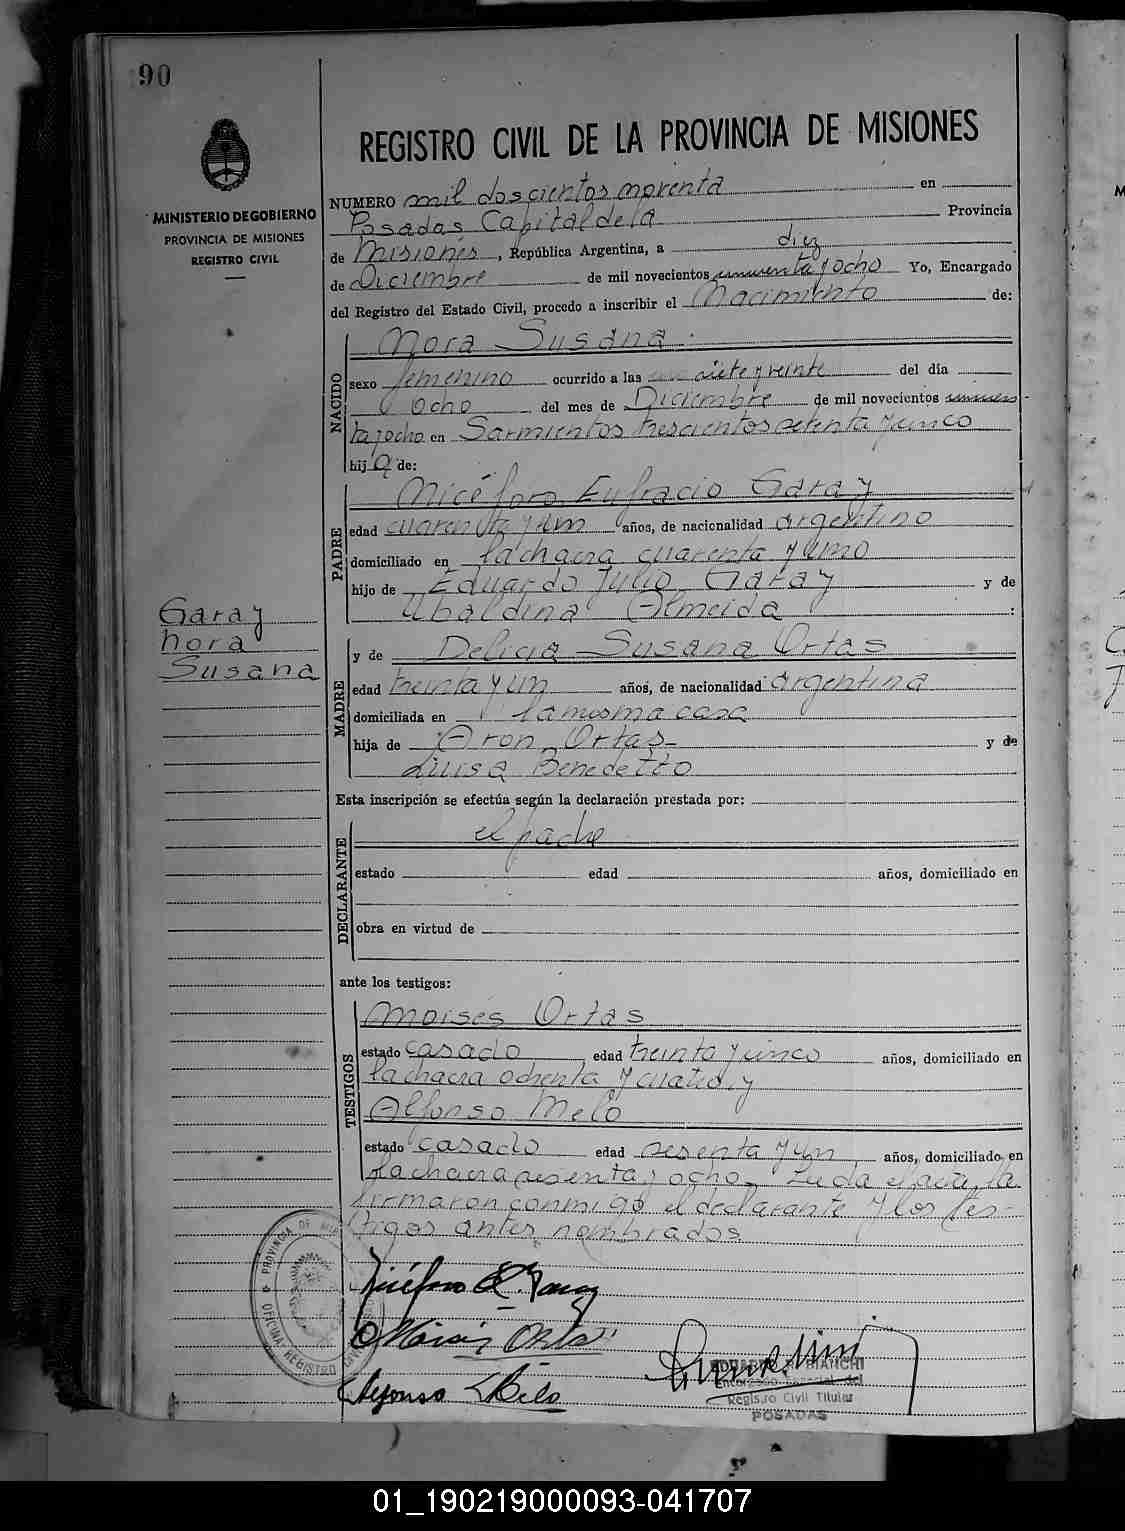 90
REGISTRO CIVIL DE LA PROVINCIA DE MISIONES
MINISTERIO DE GOBIERNO
PROVINCIA DE MISIONES
REGISTRO CIVIL
NUMERO mil doscientos noventa en
Posadas Capital de la Provincia
de Misiones, República Argentina, a diez
de Diciembre de mil novecientos cincuenta y ocho Yo, Encargado
del Registro del Estado Civil, procedo a inscribir el Nacimiento de:
NACIDO
Nora Susana
sexo femenino ocurrido a las siete y veinte del día
ocho del mes de Diciembre de mil novecientos cincuen-
ta y ocho en Sarmientos trescientos setenta y cinco
hij a de:
PADRE
Nicéforo Eufracio Garay
edad cuarenta y un años, de nacionalidad argentino
domiciliado en la chacra cuarenta y uno
hijo de Eduardo Julio Garay y de
Ubaldina Almeida :
Garay
Nora
Susana
MADRE
y de Delicia Susana Ortas
edad treinta y un años, de nacionalidad argentina
domiciliada en la misma casa
hija de Aron Ortas y de
Luisa Benedetto
Esta inscripción se efectúa según la declaración prestada por:
DECLARANTE
el padre
estado edad años, domiciliado en
obra en virtud de
ante los testigos:
TESTIGOS
Moisés Ortas
estado casado edad treinta y cinco años, domiciliado en
la chacra ochenta y cuatro y
Alfonso Melo
estado casado edad sesenta y un años, domiciliado en
la chacra sesenta y ocho. Leida el acta, la
firmaron conmigo el declarante y los tes-
tigos antes nombrados
Nicéforo E. Garay
Moisés Ortas
Alfonso Melo
PROVINCIA DE
OFICINA REGISTRO CIVIL
EDUARDO BIANCHI
Encargado del
Registro Civil Titular
POSADAS
01_190219000093-041707